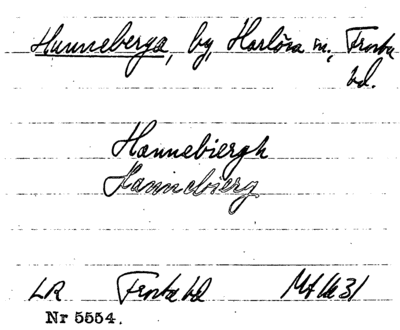 Hunneberga, by, Harlösa sn, Frosta
hd.
Hannebiergh
Hannebierg
LR Frosta hd
Nr 5554.